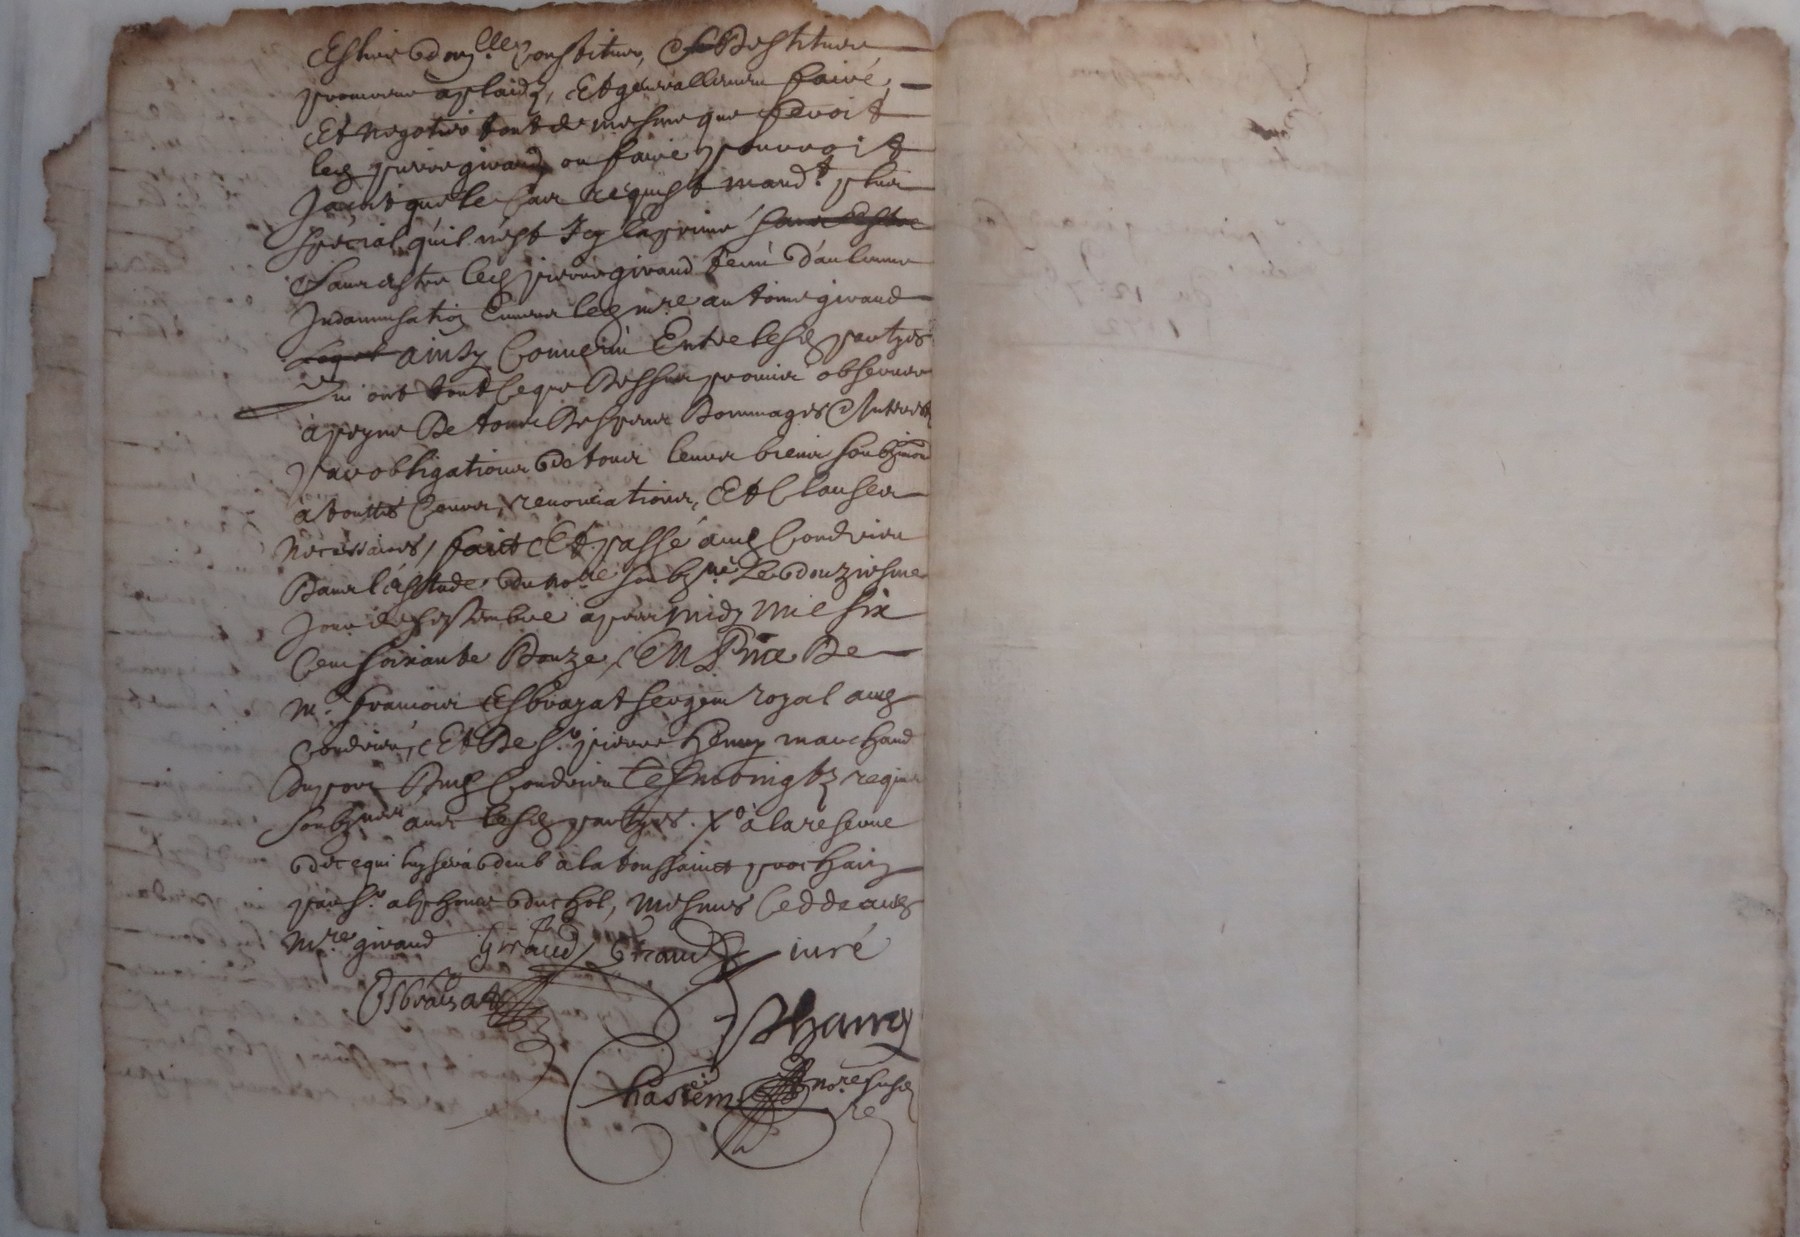 Eslire domlle Constituer, et Destituer
procureur a plaidz, Et generallement faire,
Et negotier tout de mesme que feroit
led pierre giraud ou faire pourroit
Jaçoit que le Cas requist mandt plus
special, qu'il n'est Icy Exprimé sans Estre
Sans estre led pierre giraud tenu d'aulcune
Indamnisation Envers led mre anthoine giraud
ainsy Convenu Entre lesd partyes
Qui ont tout ce que Dessus promis observer
à peyne De tous Despens Dommages Interest
par obligations de tous leurs biens soubzmis
à touttes Cours, renonciations, Et Clauses
necessaires, faict Et passé aud Condrieu
Dans l'estude du nore soubzné Le douziesme
Jour de septembre apres midy mil six
Cent soixante Douze, EN Pnce De
Me francois Esbrayat sergent royal aud
Condrieu, Et De Sr pierre Henry marchand
Du port Dud Condrieu tesmoingtz requis
soubznes avec lesd partyes. Xo à la reserve
de ce qui luy sera deub à la toussainct prochain
par Sr alphonce duchol, mesmes Cedde aud
Mre giraud Giraud Giraud iuré
Esbraiat
PHanry
Chastein nore susd
re